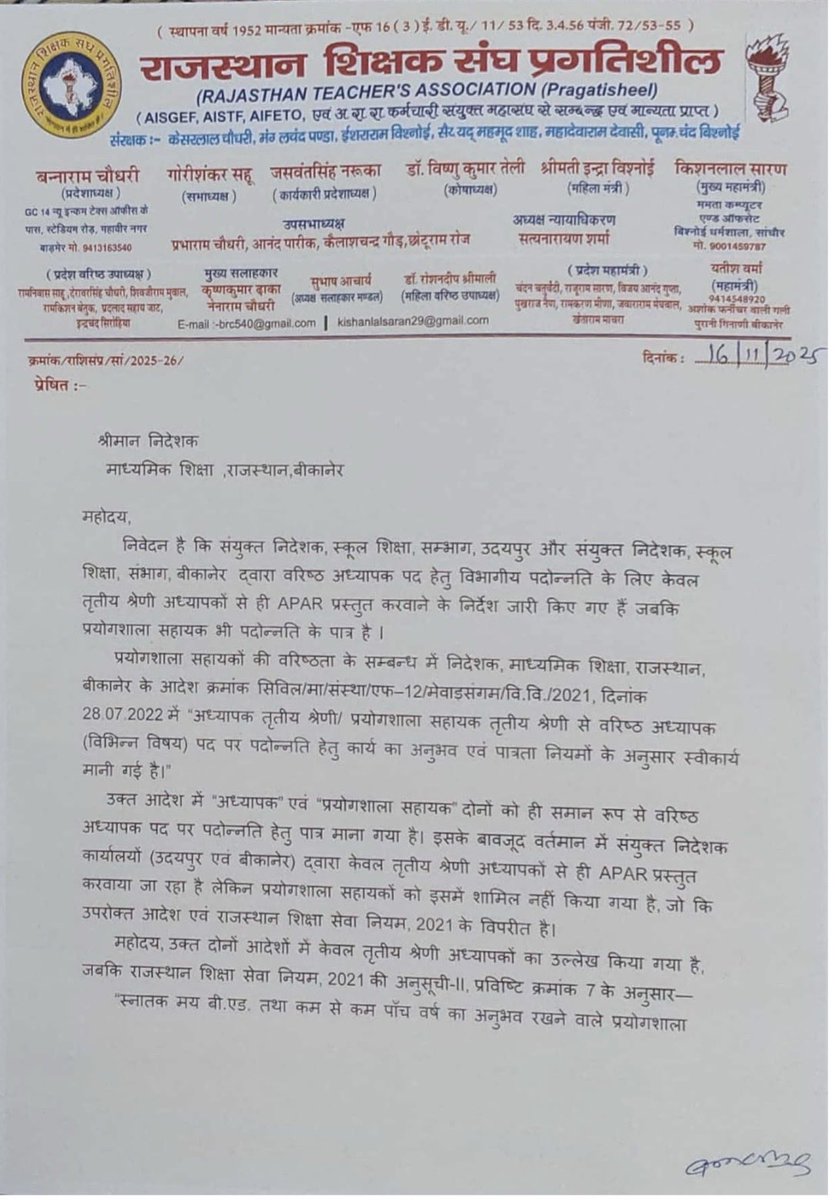 ( स्थापना वर्ष 1952 मान्यता क्रमांक -एफ 16 ( 3 ) ई. डी. यू./ 11/ 53 दि. 3.4.56 पंजी. 72/53-55 )
राजस्थान शिक्षक संघ प्रगतिशील
(RAJASTHAN TEACHER'S ASSOCIATION (Pragatisheel)
( AISGEF, AISTF, AIFETO, एवं अ. रा. रा. कर्मचारी संयुक्त महासंघ से सम्बन्द्ध एवं मान्यता प्राप्त )
संरक्षक :- केसरलाल चौधरी, मंग लचंद पण्डा, ईशराराम विश्नोई, सैय्यद् महमूद शाह, महादेवाराम देवासी, पूनम चंद बिश्नोई
बन्नाराम चौधरी गोरीशंकर साहू जसवंतसिंह नरूका डॉ. विष्णु कुमार तेली श्रीमती इन्द्रा विश्नोई किशनलाल सारण
(प्रदेशाध्यक्ष) (सभाध्यक्ष) (कार्यकारी प्रदेशाध्यक्ष) (कोषाध्यक्ष) (महिला मंत्री) (मुख्य महामंत्री)
GC 14 न्यू इन्कम टेक्स ऑफीस के
पास, स्टेडियम रोड़, महावीर नगर
बाड़मेर मो. 9413163540
उपसभाध्यक्ष
प्रभाराम चौधरी, आनंद पारीक, कैलाशचन्द गौड़, छोटूराम रोज
अध्यक्ष न्यायाधिकरण
सत्यनारायण शर्मा
ममता कम्प्यूटर
एण्ड ऑफसेट
बिश्नोई धर्मशाला, सांचौर
मो. 9001459787
(प्रदेश वरिष्ठ उपाध्यक्ष)
मुख्य सलाहकार
कृष्णकुमार ढ़ाका
नेनाराम चौधरी
सुभाष आचार्य
(अध्यक्ष सलाहकार मण्डल)
डॉ. रोशनदीप श्रीमाली
(महिला वरिष्ठ उपाध्यक्ष)
(प्रदेश महामंत्री)
यतीश वर्मा
(महामंत्री)
9414548920
अशोक फर्नीचर वाली गली
पुरानी गिनाणी बीकानेर
E-mail :-brc540@gmail.com | kishanlalsaran29@gmail.com
क्रमांक/राशिसंप्र/सां/2025-26/
दिनांक : 16/11/2025
प्रेषित :-
श्रीमान निदेशक
माध्यमिक शिक्षा ,राजस्थान,बीकानेर
महोदय,
निवेदन है कि संयुक्त निदेशक, स्कूल शिक्षा, सम्भाग, उदयपुर और संयुक्त निदेशक, स्कूल
शिक्षा, संभाग, बीकानेर द्वारा वरिष्ठ अध्यापक पद हेतु विभागीय पदोन्नति के लिए केवल
तृतीय श्रेणी अध्यापकों से ही APAR प्रस्तुत करवाने के निर्देश जारी किए गए हैं जबकि
प्रयोगशाला सहायक भी पदोन्नति के पात्र है ।
प्रयोगशाला सहायकों की वरिष्ठता के सम्बन्ध में निदेशक, माध्यमिक शिक्षा, राजस्थान,
बीकानेर के आदेश क्रमांक सिविल/मा/संस्था/एफ–12/मेवाडसंगम/वि.वि./2021, दिनांक
28.07.2022 में “अध्यापक तृतीय श्रेणी/ प्रयोगशाला सहायक तृतीय श्रेणी से वरिष्ठ अध्यापक
(विभिन्न विषय) पद पर पदोन्नति हेतु कार्य का अनुभव एवं पात्रता नियमों के अनुसार स्वीकार्य
मानी गई है।”
उक्त आदेश में “अध्यापक” एवं “प्रयोगशाला सहायक” दोनों को ही समान रूप से वरिष्ठ
अध्यापक पद पर पदोन्नति हेतु पात्र माना गया है। इसके बावजूद वर्तमान में संयुक्त निदेशक
कार्यालयों (उदयपुर एवं बीकानेर) द्वारा केवल तृतीय श्रेणी अध्यापकों से ही APAR प्रस्तुत
करवाया जा रहा है लेकिन प्रयोगशाला सहायकों को इसमें शामिल नहीं किया गया है, जो कि
उपरोक्त आदेश एवं राजस्थान शिक्षा सेवा नियम, 2021 के विपरीत है।
महोदय, उक्त दोनों आदेशों में केवल तृतीय श्रेणी अध्यापकों का उल्लेख किया गया है,
जबकि राजस्थान शिक्षा सेवा नियम, 2021 की अनुसूची-II, प्रविष्टि क्रमांक 7 के अनुसार—
“स्नातक मय बी.एड. तथा कम से कम पाँच वर्ष का अनुभव रखने वाले प्रयोगशाला